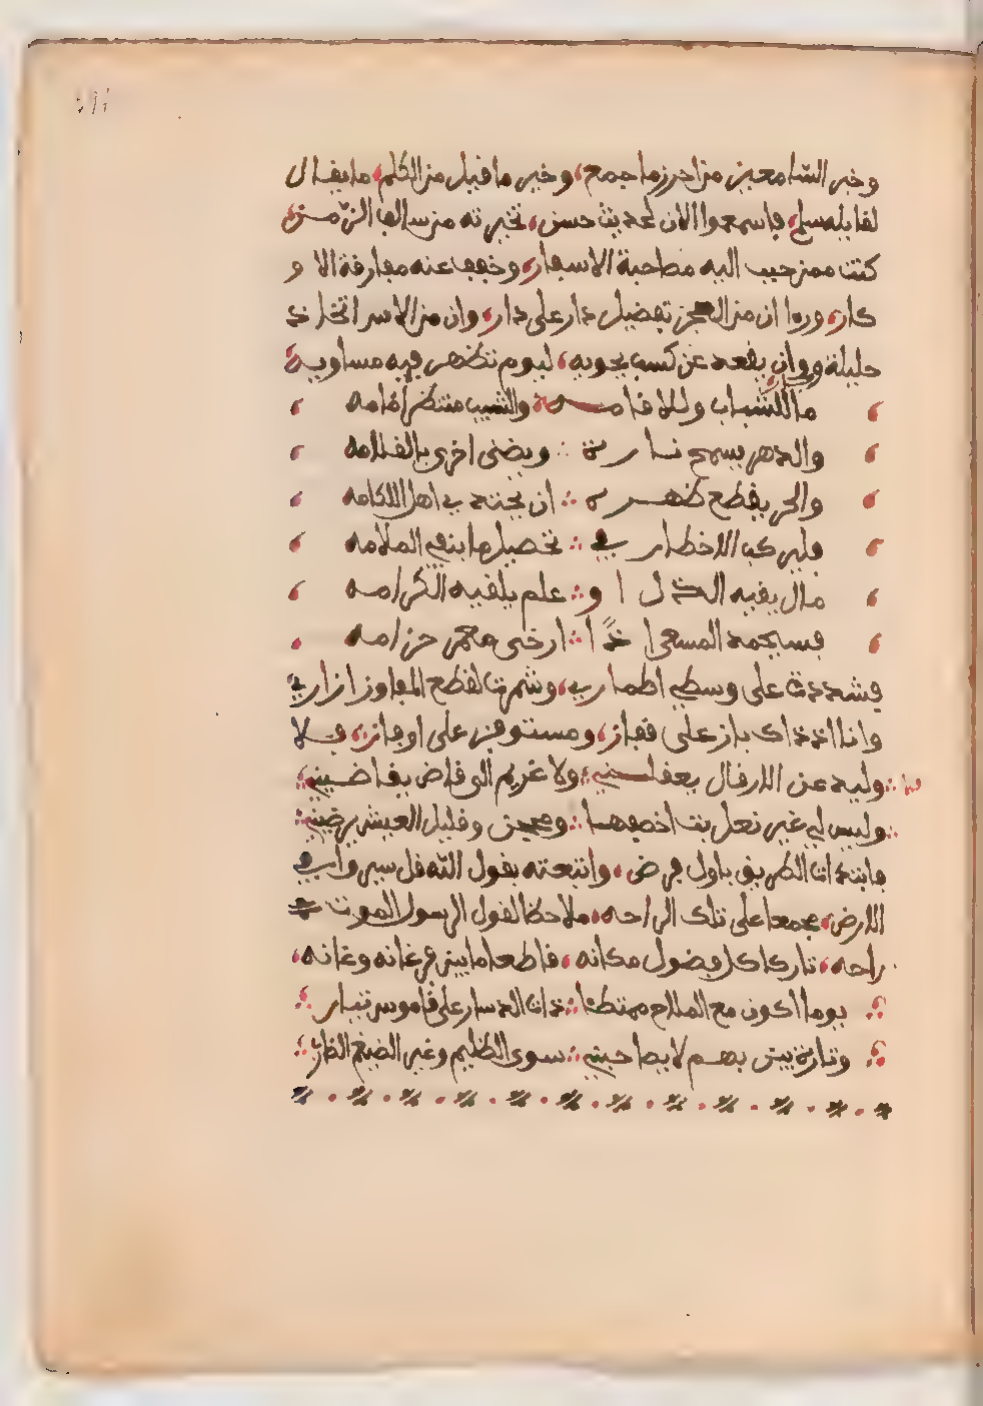 وخير السامعين من احرز ما جمع، وخير ما قيل من الكلم، ما يقال
لقايله سلم، فاسمعوا الان لحديث حسن، تخيرته من سالف الزمن،
كنت ممن حبب اليه مصاحبة الاسفار، وخفف عنه مفارقة الاو
كار، وراا ان من العجز تفضيل دار على دار، وان من الاسر اتخاذ
حليلة ووان يقعد عن كسب يحويه، ليوم تظهر فيه مساويه
ما للشباب وللاقامـــة والشيب منتظر امامه
والدهر يسمح تـــارة ∴ ويضنى اخرى بالقلامه
والحر يقطع ظهـــره ∴ ان يجتدي اهل اللكامه
فليركب الاخطار في ∴ تحصيل ما ينفي الملامه
مال يقيه الذل ا و ∴ علم يلقيه الكرامه
فسيحمد المسعى اذًا ∴ ارخى معمر حزامه
فشددت على وسطي اطماري، وشمرت لقطع المفاوز ازاري
وانا اذذاك باز على قفاز، ومستوفز على اوفاز، فــلا
وليد عن الارفال يعقلـــني، ولا غريم الى قاض يقاضيني،
وليس لي غير نعل بت اخصفها ∴ ومحجن وقليل العيش يرضيني
فابتدات الطريق باول فرض، واتبعته بقول الله قل سيروا في
الارض، مجمعا على تلك الراحه، ملاحظا لقول الرسول الموت
راحه، تاركا كل فضول مكانه، قاطعا ما بين فرغانه وغانه،
يوما اكون مع الملاح ممتطيا ∴ ذات الدسار على قاموس تيار
وتارة بين بهـــم لا يصاحبني ∴ سوى الظليم وغير الضيغم الضار